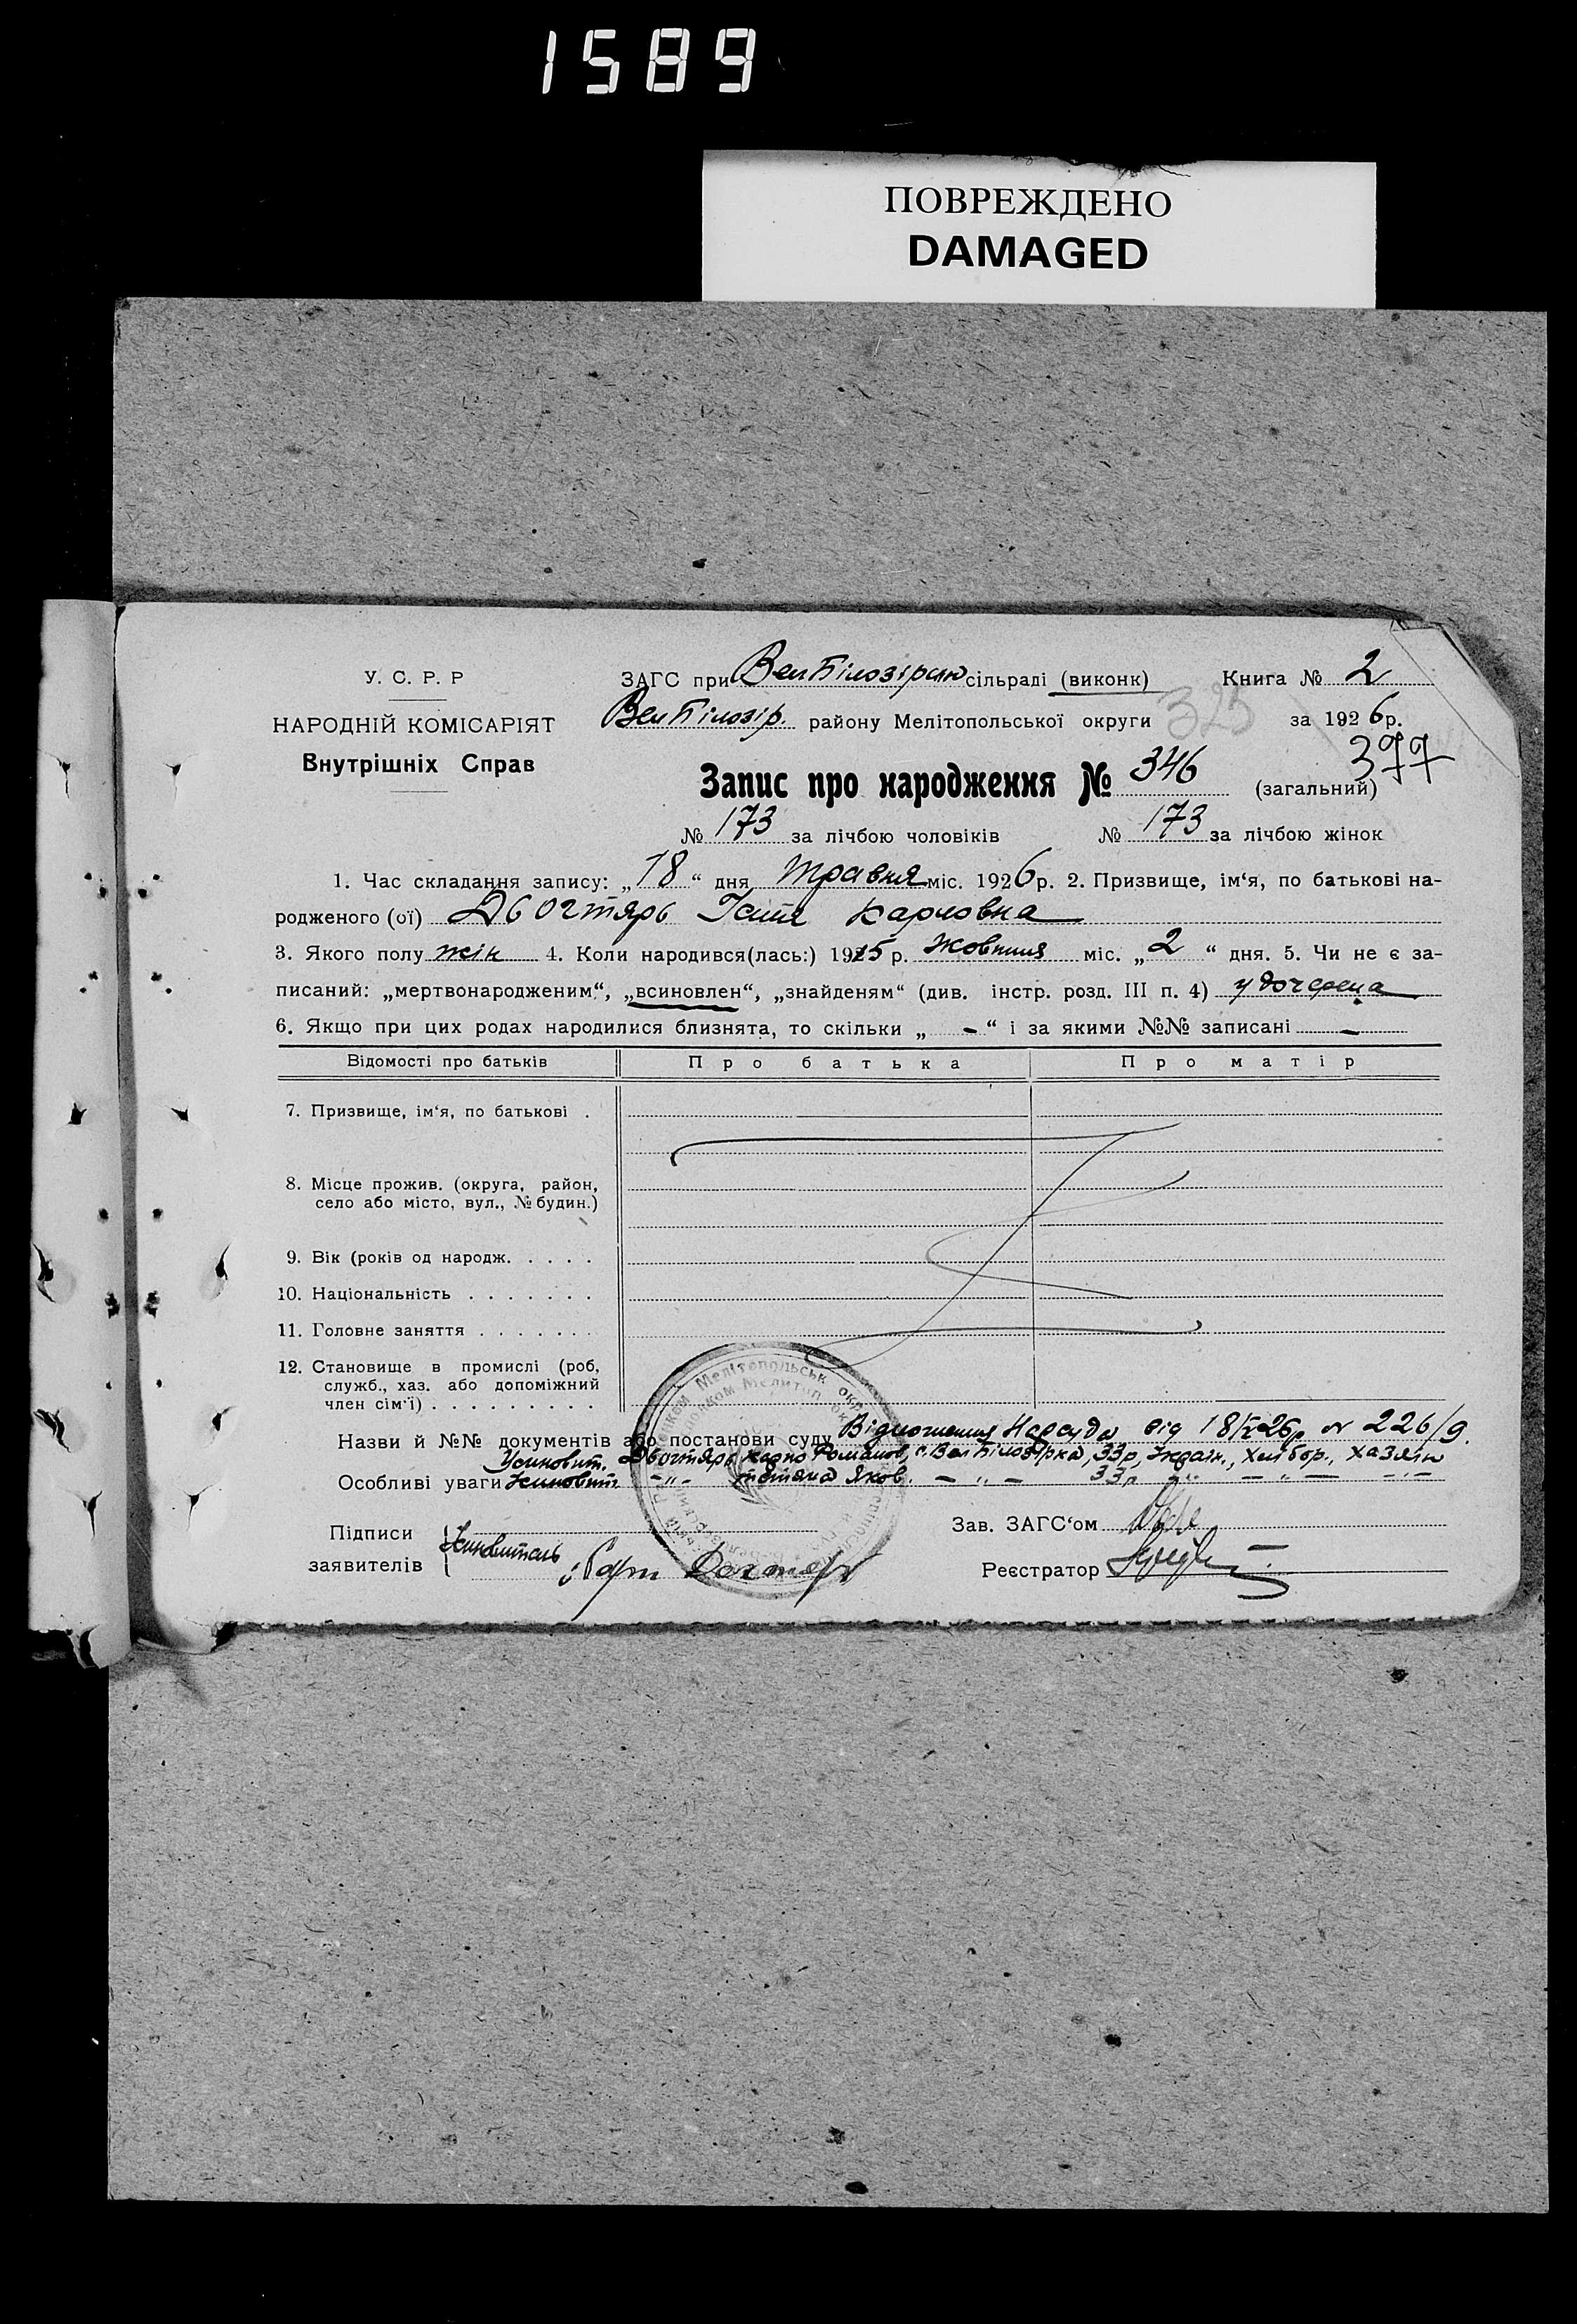 1589
ПОВРЕЖДЕНО
DAMAGED
У. С. Р. Р
НАРОДНІЙ КОМІСАРІЯТ
Внутрішніх Справ
ЗАГС при ВелБілозірск сільраді (виконк) Книга № 2
ВелБілозір. району Мелітопольської округи 323 за 1926 р.
377
Запис про народження № 346 (загальний)
№ 173 за лічбою чоловіків № 173 за лічбою жінок
1. Час складання запису: „18“ дня травня міс. 1926 р. 2. Призвище, ім‘я, по батькові на-
родженого (ої) Двогтярь Карповна
3. Якого полу жін 4. Коли народився(лась:) 1915 р. жовтня міс. „2“ дня. 5. Чи не є за-
писаний: „мертвонародженим“, „всиновлен“, „знайденям“ (див. інстр. розд. III п. 4) удочерена
6. Якщо при цих родах народилися близнята, то скільки „ - “ і за якими №№ записані -
Відомості про батьків Про батька Про матір
7. Призвище, ім‘я, по батькові .
8. Місце прожив. (округа, район,
село або місто, вул., № будин.)
9. Вік (років од народж. . . . .
10. Національність . . . . . . .
11. Головне заняття . . . . . . .
12. Становище в промислі (роб,
служб., хаз. або допоміжний
член сім‘ї) . . . . . . . . .
Назви й №№ документів або постанови суду Відношення Нарсуда від 18/V-26р № 226/9.
Усиновит. Двогтярь Карпо Романов, с. Вел Білозірка, 33р, Україн., Хлібор., хазяїн
Особливі уваги Усиновит -„- Тетяна Яков. -„- 33р -„- -„- -„-
Підписи
заявителів Усиновитель
Зав. ЗАГС‘ом
Реєстратор